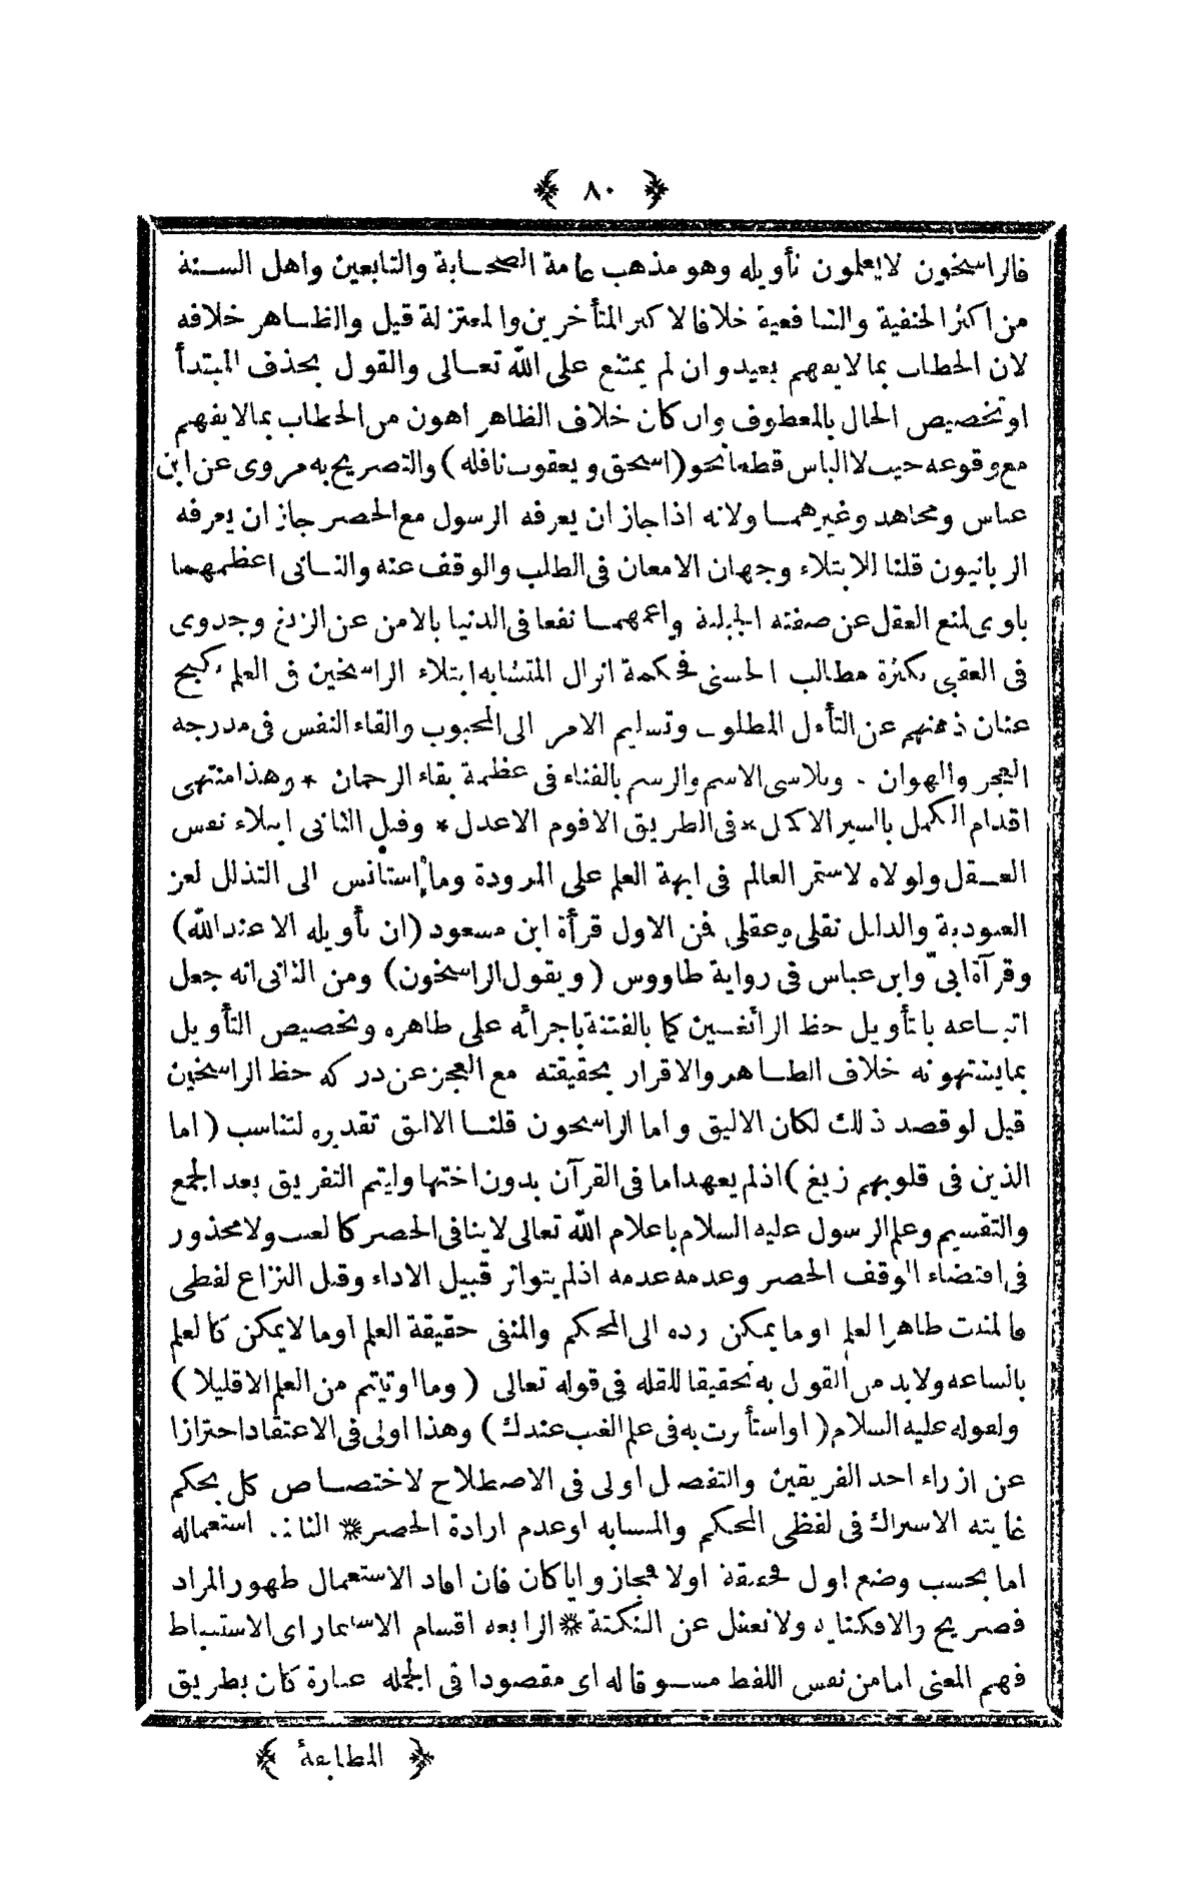 ﴿ ٨٠ ﴾
فالراسخون لايعلمون تأويله وهو مذهب عامة الصحابة والتابعين واهل السنة
من اكثر الحنفية والشافعية خلافا لاكثر المتأخرين والمعتزلة قيل والظاهر خلافه
لان الخطاب بما لايفهم بعيد وان لم يمتنع على الله تعالى والقول بحذف المبتدأ
اوتخصيص الحال بالمعطوف وان كان خلاف الظاهر اهون من الخطاب بمالايفهم
مع وقوعه حيث لاالباس قطعا نحو (اسحق ويعقوب نافله) والتصريح به مروى عن ابن
عباس ومجاهد وغيرهما ولانه اذا جاز ان يعرفه الرسول مع الحصر جاز ان يعرفه
الربانيون قلنا للابتلاء وجهان الامعان فى الطلب والوقف عنه والثانى اعظمهما
بلوى لمنع العقل عن صفته الجبلية واعمهما نفعا فى الدنيا بالامن عن الزيغ وجدوى
فى العقبى بكثرة مطالب الحسنى فحكمة انزال المتشابه ابتلاء الراسخين فى العلم بكبح
عنان ذهنهم عن التأمل المطلوب وتسليم الامر الى المحبوب والقاء النفس فى مدرجه
العجز والهوان . وتلاشى الاسم والرسم بالفناء فى عظمة بقاء الرحمان * وهذا منتهى
اقدام الكمل بالسير الاكمل * فى الطريق الاقوم الاعدل * وقيل الثانى ابتلاء نفس
العقل ولولاه لاستمر العالم فى ابهة العلم على المرودة وما استأنس الى التذلل لعز
العبودية والدليل نقلى وعقلى فمن الاول قرأة ابن مسعود (ان تأويله الا عند الله)
وقرآة ابىّ وابن عباس فى رواية طاووس (ويقول الراسخون) ومن الثانى انه جعل
اتباعه باتأويل حظ الزائغين كما بالفتنة باجرائه على ظاهره وتخصيص التأويل
بما يشتهونه خلاف الظاهر والاقرار بحقيقته مع العجز عن دركه حظ الراسخين
قيل لو قصد ذلك لكان الاليق واما الراسخون قلنا الاليق تقديره لتناسب (اما
الذين فى قلوبهم زيغ) اذ لم يعهد اما فى القرآن بدون اختها وليتم التفريق بعد الجمع
والتقسيم وعلم الرسول عليه السلام باعلام الله تعالى لاينافى الحصر كالغيب ولامحذور
فى اقتضاء الوقف الحصر وعدمه عدمه اذ لم يتواتر قبيل الاداء وقيل النزاع لفظى
فالمثبت ظاهر العلم اوما يمكن رده الى المحكم والمنفى حقيقة العلم اوما لايمكن كالعلم
بالساعه ولابد من القول به تحقيقا للقله فى قوله تعالى (وما اوتيتم من العلم الاقليلا)
ولقوله عليه السلام (اواستأثرت به فى علم الغيب عندك) وهذا اولى فى الاعتقاد احترازا
عن ازراء احد الفريقين والتفصيل اولى فى الاصطلاح لاختصاص كل بحكم
غايته الاشتراك فى لفظى المحكم والمتشابه اوعدم ارادة الحصر ❋ الثالثة. استعماله
اما بحسب وضع اول فحقيقة اولا فمجاز وايا كان فان افاد الاستعمال ظهور المراد
فصريح والا فكناية ولانغفل عن النكتة ❋ الرابعه اقسام الاستثمار اى الاستنباط
فهم المعنى اما من نفس اللفظ مسوقا له اى مقصودا فى الجمله عبارة كان بطريق
﴿ المطابقة ﴾